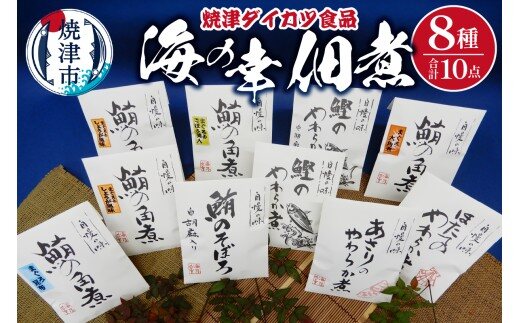 焼津市
焼津ダイカツ食品
海の幸佃煮
8種
合計10点
自慢の味
鮪の角煮
自慢の味
鮪の角煮
自慢の味
鰹の
やわらか煮
自慢の味
鮪の角煮
自慢の味
鮪の角煮
自慢の味
鰹の
やわらか煮
自慢の味
鮪の角煮
自慢の味
鮪のそぼろ
白胡麻入り
自慢の味
あさりの
やわらか煮
自慢の味
ほたての
やわらか煮